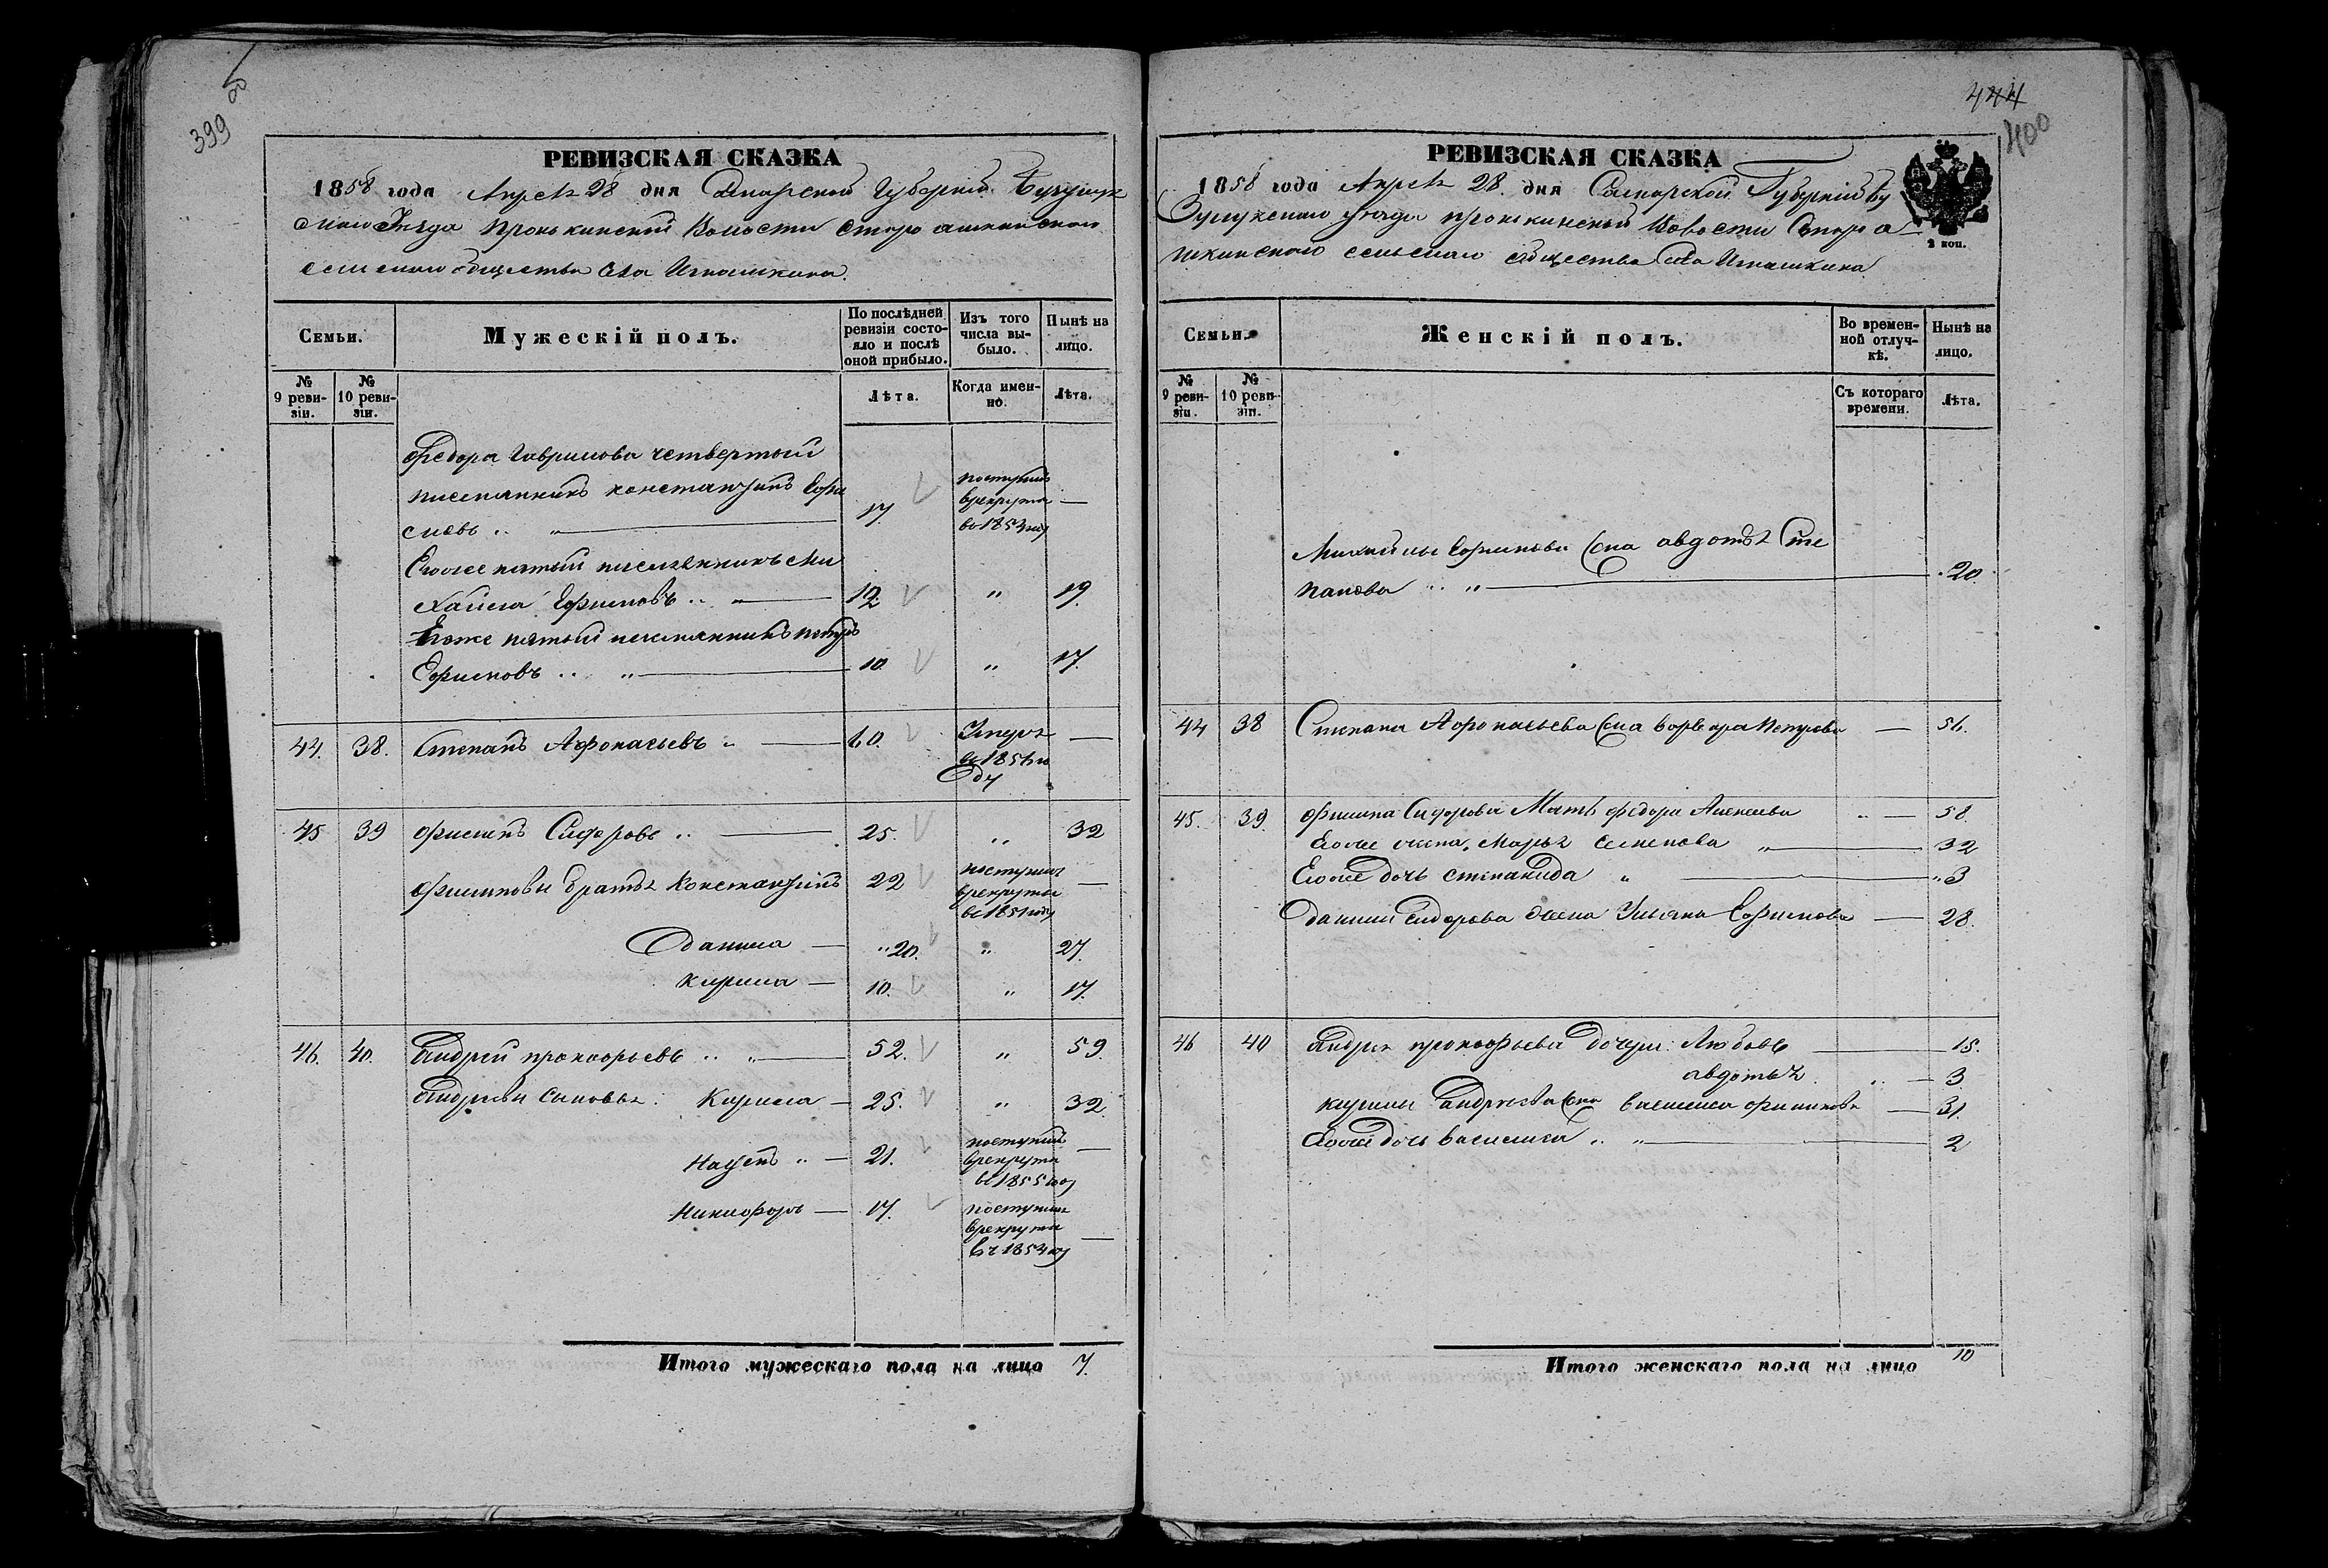 399
РЕВИЗСКАЯ СКАЗКА
1858 года Апреля 28 дня Самарской Губернии Бузулук
скаго Уезда пронькинской Волости старо ашкинскаго
сельскаго общества села Игнашкина.
Семьи.
Мужескій полъ.
По послѣдней ревизіи состояло и послѣ оной прибыло.
Изъ того числа выбыло.
Нынѣ на лицо.
№ 9 ревизіи.
№ 10 ревизіи.
Лѣта.
Когда именно.
Лѣта.
Федора Гаврилова четвертый
племянникъ константинъ Ефи
мовъ 17. поступилъ в рекруты во 1853 году —
Егоже пятый племянникъ Ми
хайла Ефимовъ 12 " 19.
Егоже пятый племянникъ петръ
Ефимовъ 10 " 17.
44. 38. Степанъ Афонасьевъ 60. Умеръ в 1856 го
ду —
45 39 Филипъ Сидоровъ 25. " 32
Филиповы братья Константинъ 22 поступилъ в рекруты в 1851 году —
Данила — 20. " 27.
Кирила — 10. " 17.
46. 40. Андрей прокофьевъ 52. " 59.
Андреевы Сыновья: Кирила — 25. " 32.
Наумъ — 21. поступилъ в рекруты в 1855 году —
Никифоръ — 17. поступилъ в рекруты въ 1853 году —
Итого мужескаго пола на лицо 7.
444
400
РЕВИЗСКАЯ СКАЗКА
1858 года Апреля 28. дня Самарской Губерніи Бу
зулукскаго уезда пронькинской Волости Старо а
шкинскаго сельскаго общества села Игнашкина.
2 коп.
Семьи.
Женскій полъ.
Во временной отлучкѣ.
Нынѣ на лицо.
№ 9 ревизіи.
№ 10 ревизіи.
Съ котораго времени.
Лѣта.
Михайлы Ефимова жена авдотья Сте
панова 20.
44 38 Степана Афонасьева жена варвара Петрова — 56.
45. 39. Филипа Сидорова Мать федора Алексеева — 58.
Егоже жена, Марья Семенова 32
Егоже дочь степанида 3
данилы Сидорова жена Ульяна Ефимова — 28.
46 40 Андрея прокофьева дочери: Любовь 15.
авдотья — 3
кирилы Андреева жена василиса филипова — 31.
Егоже дочь василиса 2
Итого женскаго пола на лицо 10